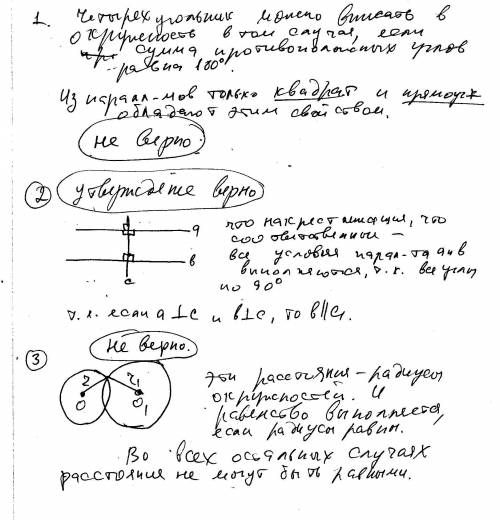 1. Четырехугольник можно вписать в
окружность в том случае, если
сумма противоположных углов
равна 180°.
Из паралл-мов только квадрат и прямоуг.
обладают этим свойством.
не верно.
2 утверждение верно
что накрест лежащие, что
соответственные —
все условия парал-ти а и в
выполняются, т.к. все углы
по 90°
а
в
с
т.к. если а⊥с и в⊥с, то в∥а.
3 не верно.
r r₁
O O₁
эти расстояния – радиусы
окружностей. И
равенство выполняется,
если радиусы равны.
Во всех остальных случаях
расстояния не могут быть равными.